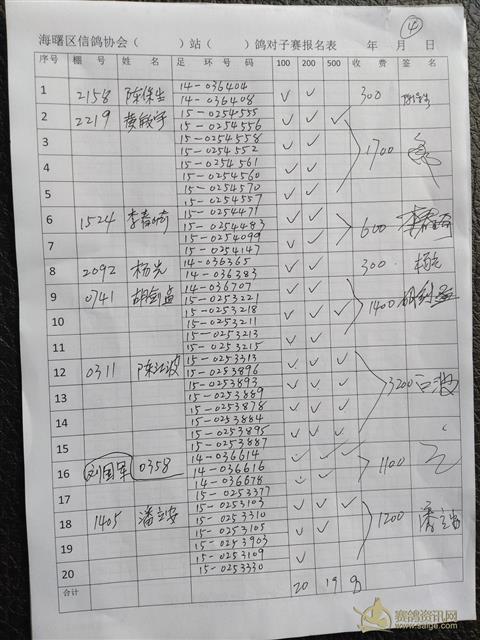 ④
海曙区信鸽协会（ ）站（ ）鸽对子赛报名表 年 月 日
序号 棚 号 姓 名 足 环 号 码 100 200 500 收 费 签 名
1 2158 陈保生 14-036404 ✓ ✓ 300
14-036408
2 2219 黄敏宇 15-0254555 ✓ ✓ ✓ 1700
15-0254556
3 15-0254558 ✓ ✓
15-0254552
4 15-0254561 ✓ ✓
15-0254560
5 15-0254570 ✓ ✓
15-0254557
6 1524 15-0254471 ✓ ✓ 600
15-0254483
7 15-0254099 ✓ ✓
15-0254147
8 2092 杨光 14-036365 ✓ ✓ 300 杨光
14-036383
9 0741 胡剑益 14-036707 ✓ ✓ 1400 胡剑益
15-0253221
10 15-0253218 ✓ ✓ ✓
15-0253211
11 15-0253213 ✓ ✓
15-0253215
12 0311 陈江波 15-0253313 ✓ ✓ ✓ 3200
15-0253896
13 15-0253893 ✓ ✓ ✓
15-0253889
14 15-0253878 ✓ ✓ ✓
15-0253884
15 15-0253895 ✓ ✓ ✓
15-0253887
16 刘国军 0358 14-036614 ✓ ✓ ✓ 1100
14-036616
17 14-036678 ✓ ✓
15-0253377
18 1405 潘立安 15-0253103 ✓ ✓ ✓ 1200 潘立安
15-0253310
19 15-0253105 ✓ ✓
15-0253903
20 15-0253109 ✓
15-0253330
合计 20 19 8
赛鸽资讯网
www.saige.com